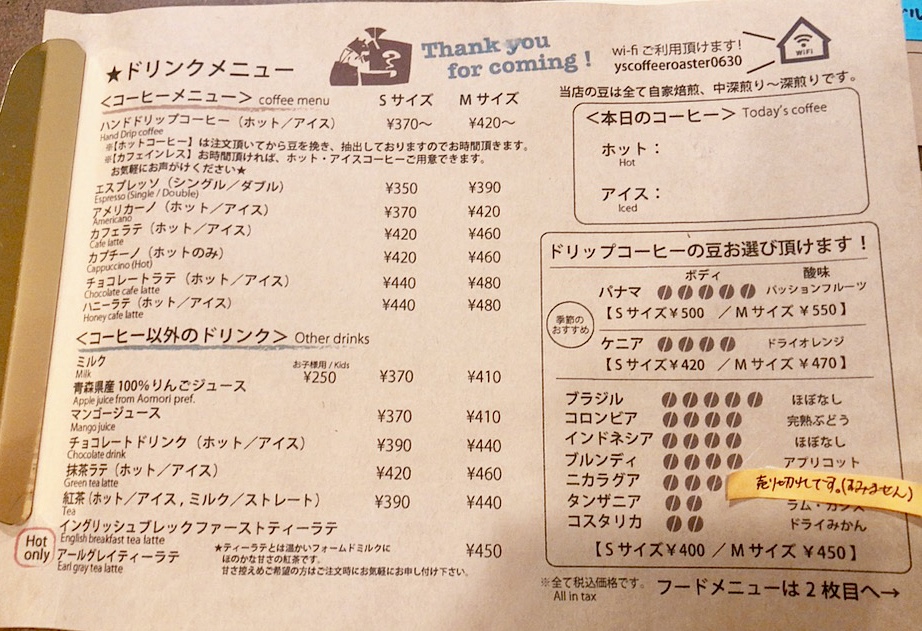 ★ドリンクメニュー
Thank you
for coming !
wi-fi ご利用頂けます!
yscoffeeroaster0630
WiFi
当店の豆は全て自家焙煎、中深煎り〜深煎りです。
＜コーヒーメニュー＞ coffee menu Sサイズ Mサイズ
ハンドドリップコーヒー（ホット／アイス） ¥370〜 ¥420〜
Hand Drip coffee
※【ホットコーヒー】は注文頂いてから豆を挽き、抽出しておりますのでお時間頂きます。
※【カフェインレス】お時間頂ければ、ホット・アイスコーヒーご用意できます。
お気軽にお声がけください★
エスプレッソ（シングル／ダブル） ¥350 ¥390
Espresso (Single / Double)
アメリカーノ（ホット／アイス） ¥370 ¥420
Americano
カフェラテ（ホット／アイス） ¥420 ¥460
Cafe latte
カプチーノ（ホットのみ） ¥420 ¥460
Cappuccino (Hot)
チョコレートラテ（ホット／アイス） ¥440 ¥480
Chocolate cafe latte
ハニーラテ（ホット／アイス） ¥440 ¥480
Honey cafe latte
＜コーヒー以外のドリンク＞ Other drinks
ミルク
Milk
お子様用 / Kids
¥250 ¥370 ¥410
青森県産100％りんごジュース
Apple juice from Aomori pref.
マンゴージュース ¥370 ¥410
Mango juice
チョコレートドリンク（ホット／アイス） ¥390 ¥440
Chocolate drink
抹茶ラテ（ホット／アイス） ¥420 ¥460
Green tea latte
紅茶（ホット／アイス，ミルク／ストレート） ¥390 ¥440
Tea
イングリッシュブレックファーストティーラテ
English breakfast tea latte
Hot
only
アールグレイティーラテ ¥450
Earl gray tea latte
★ティーラテとは温かいフォームドミルクに
ほのかな甘さの紅茶です。
甘さ控えめご希望の方はご注文時にお気軽にお申し付け下さい。
＜本日のコーヒー＞ Today's coffee
ホット：
Hot
アイス：
Iced
ドリップコーヒーの豆お選び頂けます！
ボディ 酸味
季節の
おすすめ
パナマ パッションフルーツ
【Sサイズ¥500 ／Mサイズ¥550】
ケニア ドライオレンジ
【Sサイズ¥420 ／Mサイズ¥470】
ブラジル ほぼなし
コロンビア 完熟ぶどう
インドネシア ほぼなし
ブルンディ アプリコット
ニカラグア 売り切れです。(すみません)
タンザニア
コスタリカ ドライみかん
【Sサイズ¥400 ／Mサイズ¥450】
※全て税込価格です。
All in tax
フードメニューは２枚目へ→